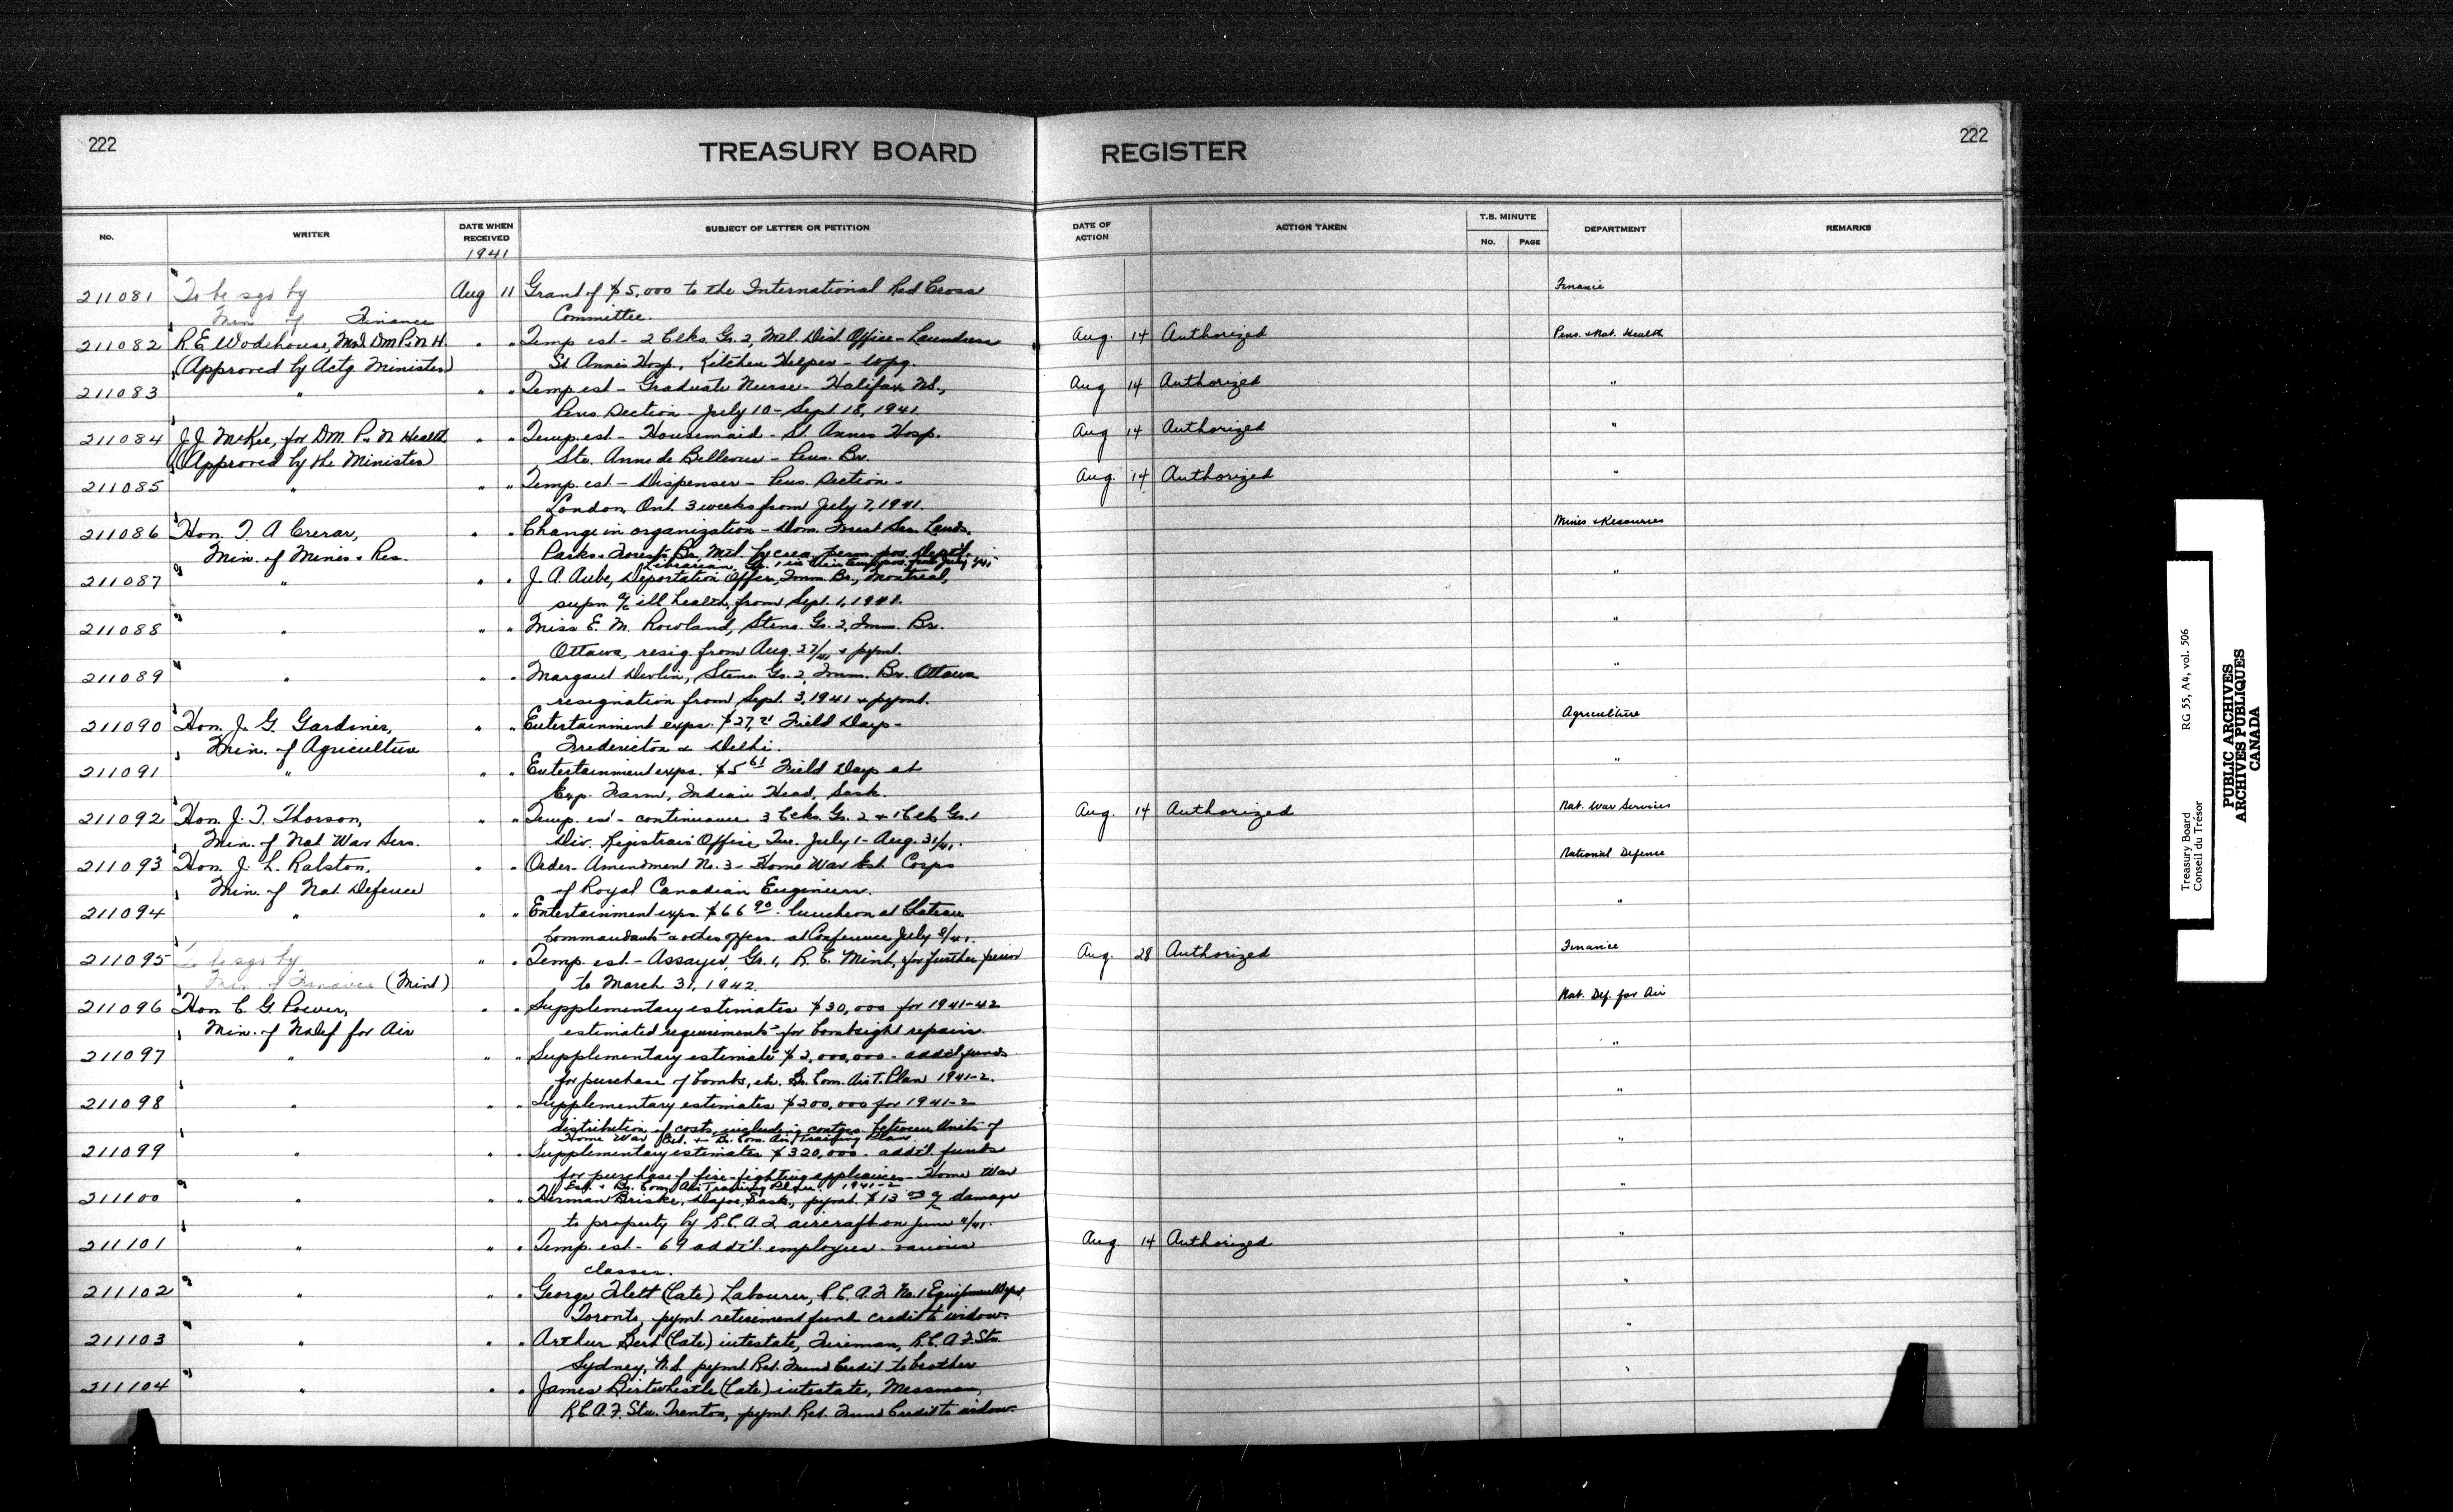 222
TREASURY BOARD REGISTER
222
No. WRITER DATE WHEN RECEIVED SUBJECT OF LETTER OR PETITION DATE OF ACTION ACTION TAKEN T.B. MINUTE No. PAGE DEPARTMENT REMARKS
1941
211081 To be sgd by Aug 11 Grant of $5,000 to the International Red Cross Finance
Min of Finance Committee.
211082 R.E. Wodehouse, M.D. DM P&N H. " " Temp est - 2 Clks. Gr. 2, Mtl. Dist. Office - Laundress Aug. 14 Authorized Pens. & Nat. Health
(Approved by Actg Minister) St Annes Hosp., Kitchen Helper - Wpg.
211083 " " " Temp est - Graduate Nurse - Halifax N.S., Aug 14 Authorized "
Pens. Section - July 10 - Sept 18, 1941.
211084 J.J. McKee, for DM. P. & N Health " " Temp. est - Housemaid - St. Annes Hosp. Aug 14 Authorized "
(Approved by the Minister) Ste. Anne de Bellevue - Pens. Br.
211085 " " " Temp. est - Dispenser - Pens. Section - Aug. 14 Authorized "
London, Ont. 3 weeks from July 7, 1941.
211086 Hon. T. A Crerar, " " Change in organization - Dom. Forest Ser. Lands, Mines & Resources
Min. of Mines & Res. Parks & Forests Br., Mtl. by crea. perm. pos.
Librarian, Gr. 1
211087 " " " J. A. Aube, Deportation Officer, Imm. Br., Montreal, "
supn a/c ill health, from Sept. 1, 1941.
211088 " " " Miss E. M. Rowland, Steno. Gr. 2, Imm. Br. "
Ottawa, resig. from Aug. 27/41 & pymt.
211089 " " " Margaret Devlin, Steno Gr. 2, Imm. Br. Ottawa "
resignation from Sept. 3, 1941 & pymt.
211090 Hon. J. G. Gardiner, " " Entertainment exps. Field Days - Agriculture
Min. of Agriculture Fredericton & Delhi.
211091 " " " Entertainment exps. $5 61 Field Day at "
Exp. Farm, Indian Head, Sask.
211092 Hon. J. T. Thorson, " " Temp. est - continuance 3 Clks. Gr. 2 & 1 Clk Gr. 1 Aug. 14 Authorized Nat. War Services
Min. of Nat War Sers. Div. Registrars Office July 1 - Aug. 31/41.
211093 Hon. J. L. Ralston, " " Order - Amendment No. 3 - Home War Est. Corps National Defence
Min. of Nat. Defence of Royal Canadian Engineers.
211094 " " " Entertainment exps. $66 90 - luncheon at Chateau "
Commandants & other offcrs. at Conference July 8/41.
211095 To be sgd by " " Temp. est - Assayer, Gr. 1, R. C. Mint, for further period Aug. 28 Authorized Finance
Min. of Finance (Mint) to March 31, 1942.
211096 Hon C. G. Power, " " Supplementary estimates $30,000 for 1941-42 Nat. Def. for Air
Min. of N Def for Air estimated requirements for bombsight repairs.
211097 " " " Supplementary estimate $2,000,000 - add'l funds "
for purchase of bombs, etc. Br. Com. Air T. Plan 1941-2.
211098 " " " Supplementary estimates $200,000 for 1941-2 "
distribution of costs, including contgs. between Units of
Home War Est. & Br. Com. Air Training Plan.
211099 " " " Supplementary estimates $320,000 - add'l. funds "
for purchase of fire-fighting appliances - Home War
Est. & Br. Com. Air Training Plan 1941-2
211100 " " " Herman Briske, Dafoe, Sask., pymt. $13 a/c damage "
to property by R.C.A.F. aircraft on June
211101 " " " Temp. est - 69 add'l. employees - various Aug. 14 Authorized "
classes.
211102 " " " George Flett (late) Labourer, R.C.A.F. No. 1 Equipment Depot, "
Toronto, pymt. retirement fund credit to widow.
211103 " " " Arthur (late) intestate, Fireman, R.C.A.F. Stn. "
Sydney, N.S. pymt. Ret. Fund Credit to brother
211104 " " " James Birtwhistle (late) intestate, Messman, "
R.C.A.F. Stn. Trenton, pymt. Ret. Fund Credit to widow.
Treasury Board RG 55, A4, vol. 506
Conseil du Trésor
PUBLIC ARCHIVES
ARCHIVES PUBLIQUES
CANADA